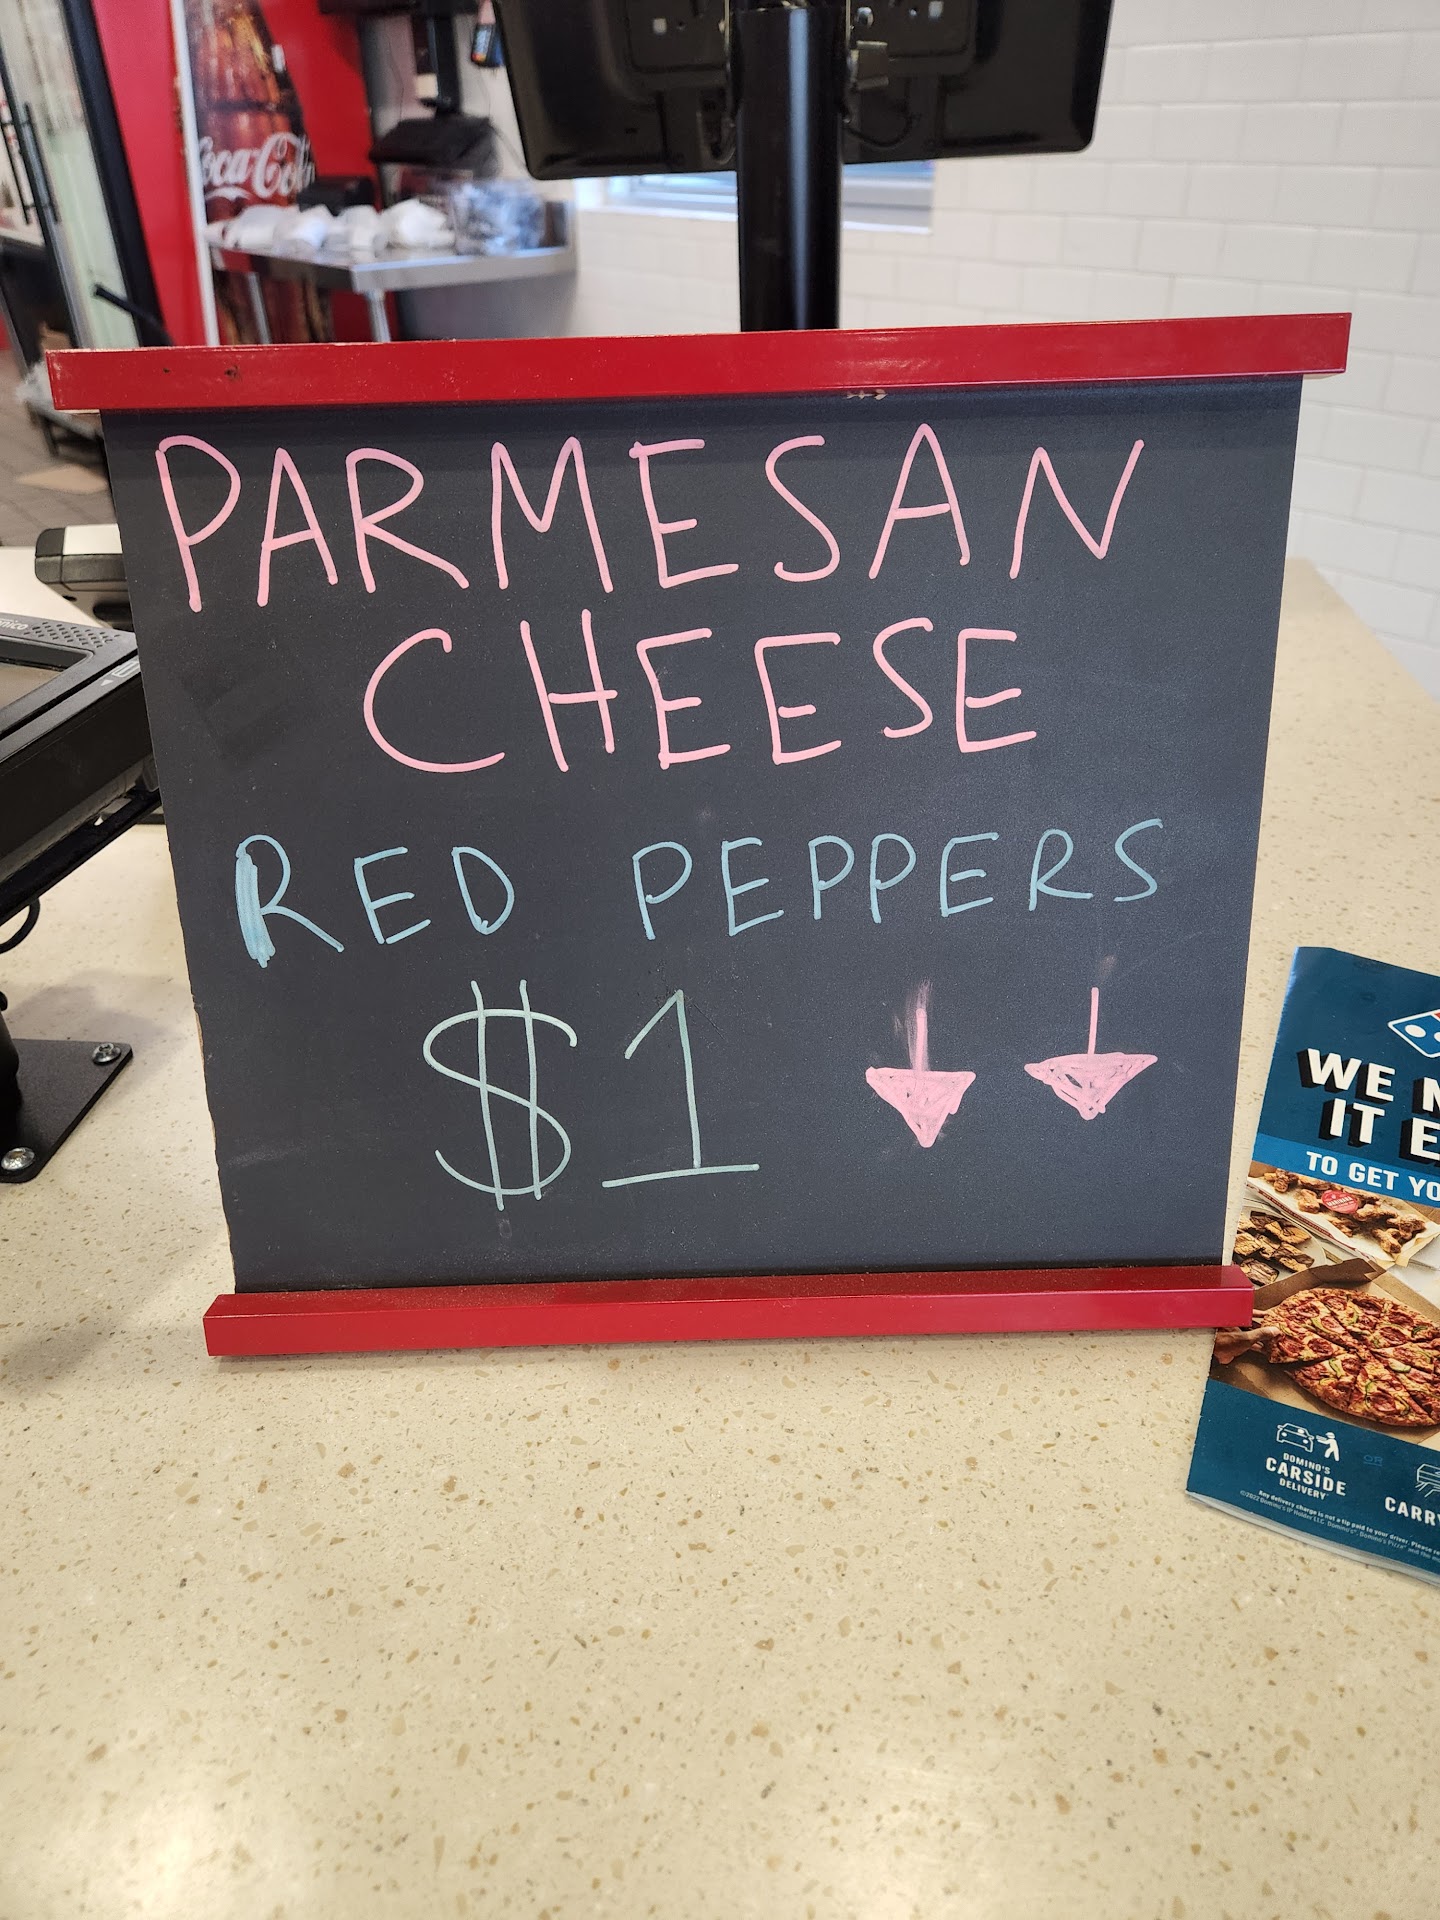 Coca-Cola
PARMESAN
CHEESE
RED PEPPERS
$1
WE
IT
TO GET
DOMINO'S
CARSIDE
DELIVERY
OR
Any delivery charge is not a tip paid to your driver. Please
©2022 Domino's IP Holder LLC. Domino's®, Domino's Pizza® and the